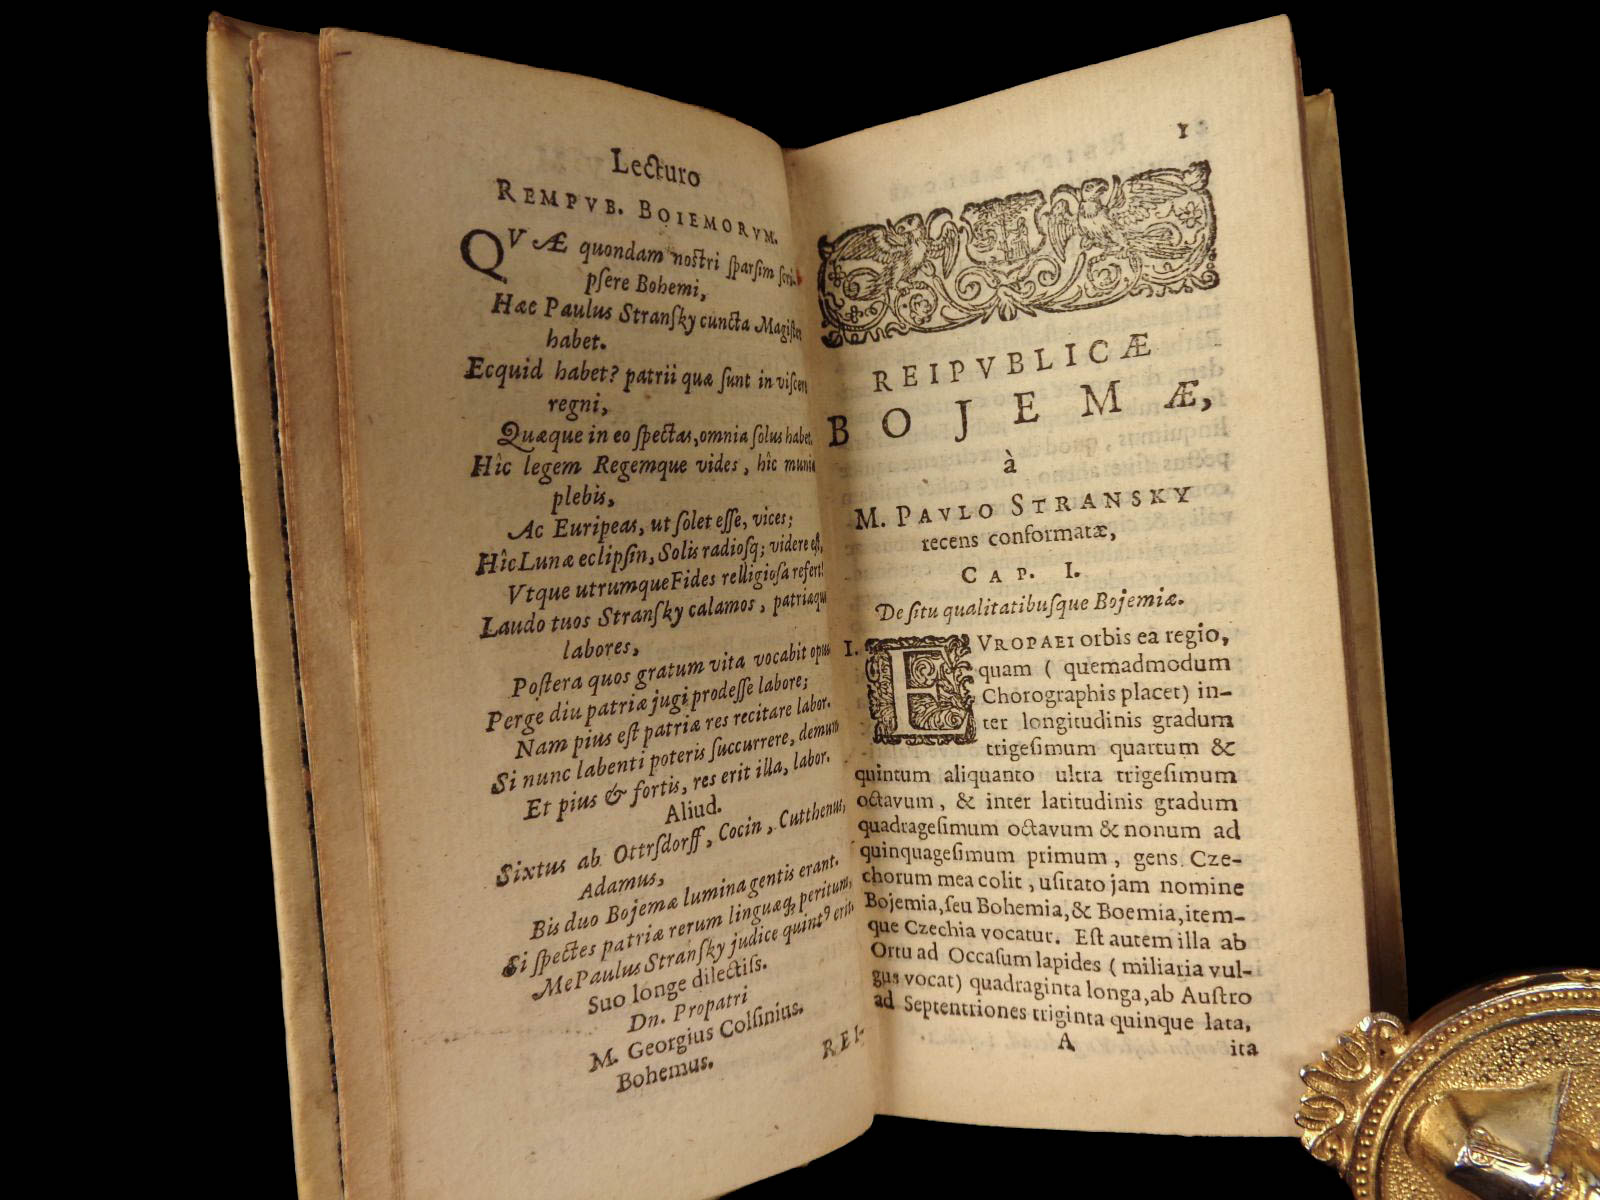 Lecturo
REMPVB. BOIEMORVM.
QVÆ quondam nostri ſparſim ſcri-
pſere Bohemi,
Hæc Paulus Stranſky cuncta Magiſter
habet.
Ecquid habet? patrii quæ ſunt in viſcere
regni,
Quæque in eo ſpectas, omnia ſolus habet.
Hîc legem Regemque vides, hîc munia
plebis,
Ac Euripeas, ut ſolet eſſe, vices;
Hîc Lunæ eclipſin, Solis radioſq; videre eſt,
Vtque utrumque Fides relligioſa refert!
Laudo tuos Stranſky calamos, patriæque
labores,
Poſtera quos gratum vita vocabit opus
Perge diu patriæ jugi prodeſſe labore;
Nam pius eſt patriæ res recitare labor.
Si nunc labenti poteris ſuccurrere, demum
Et pius & fortis, res erit illa, labor.
Aliud.
Sixtus ab Ottrſdorff, Cocin, Cutthenus,
Adamus,
Bis duo Bojemæ lumina gentis erant.
Si ſpectes patriæ rerum linguæq; peritum,
Me Paulus Stranſky judice quintꝰ erit.
Suo longe dilectiſs.
Dn. Propatri
M. Georgius Colſinius.
Bohemus.
REI-
1
REIPVBLICÆ
BOJEMÆ,
à
M. PAVLO STRANSKY
recens conformatæ,
CAP. I.
De ſitu qualitatibuſque Bojemiæ.
I. EVROPAEI orbis ea regio,
quam ( quemadmodum
Chorographis placet) in-
ter longitudinis gradum
trigeſimum quartum &
quintum aliquanto ultra trigeſimum
octavum, & inter latitudinis gradum
quadrageſimum octavum & nonum ad
quinquageſimum primum, gens Cze-
chorum mea colit, uſitato jam nomine
Bojemia, ſeu Bohemia, & Boemia, item-
que Czechia vocatur. Eſt autem illa ab
Ortu ad Occaſum lapides ( miliaria vul-
gus vocat) quadraginta longa, ab Auſtro
ad Septentriones triginta quinque lata,
A
ita